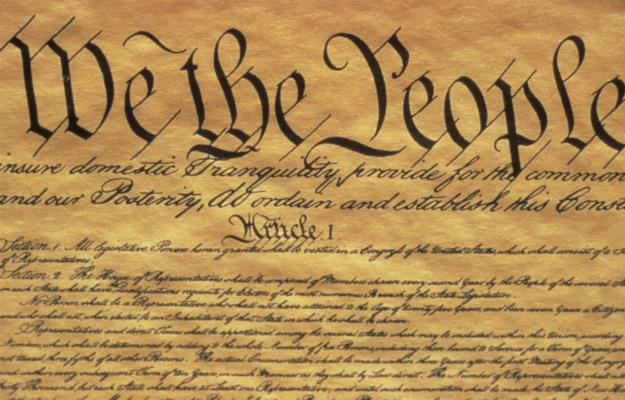 We the People
insure domestic Tranquility, provide for the common
and our Posterity, do ordain and establish this Const
Article. I.
Section. 1. All legislative Powers herein granted shall be vested in a Congress of the United States, which shall consist of a
of Representatives.
Section. 2. The House of Representatives shall be composed of Members chosen every second Year by the People of the several
in each State shall have Qualifications requisite for Electors of the most numerous Branch of the State Legislature.
No Person shall be a Representative who shall not have attained to the Age of twenty five Years, and been seven Years a Citizen
and who shall not, when elected, be an Inhabitant of that State in which he shall be chosen.
Representatives and direct Taxes shall be apportioned among the several States which may be included within this Union, according
Numbers, which shall be determined by adding to the whole Number of free Persons, including those bound to Service for a Term of Years, and
not taxed, three fifths of all other Persons. The actual Enumeration shall be made within three Years after the first Meeting of the Congress
and within every subsequent Term of ten Years, in such Manner as they shall by Law direct. The Number of Representatives shall not
thirty Thousand, but each State shall have at Least one Representative; and until such enumeration shall be made, the State of New